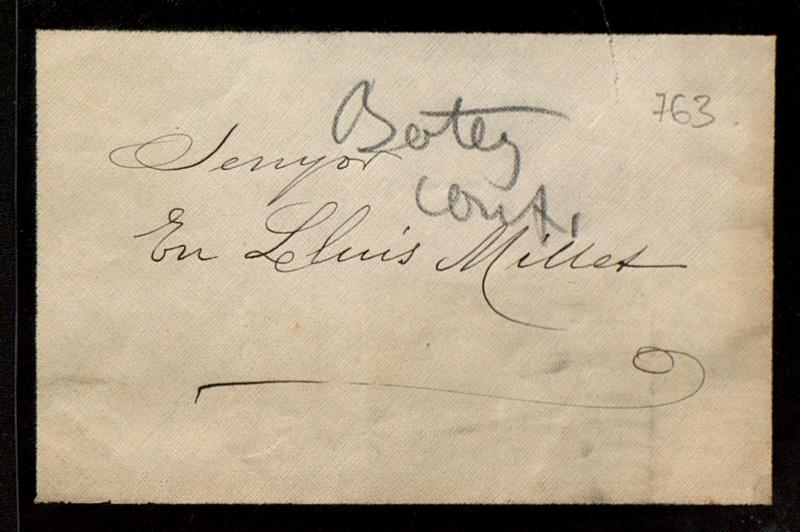 763
Botey
cont.
Senyor
En Lluis Millet